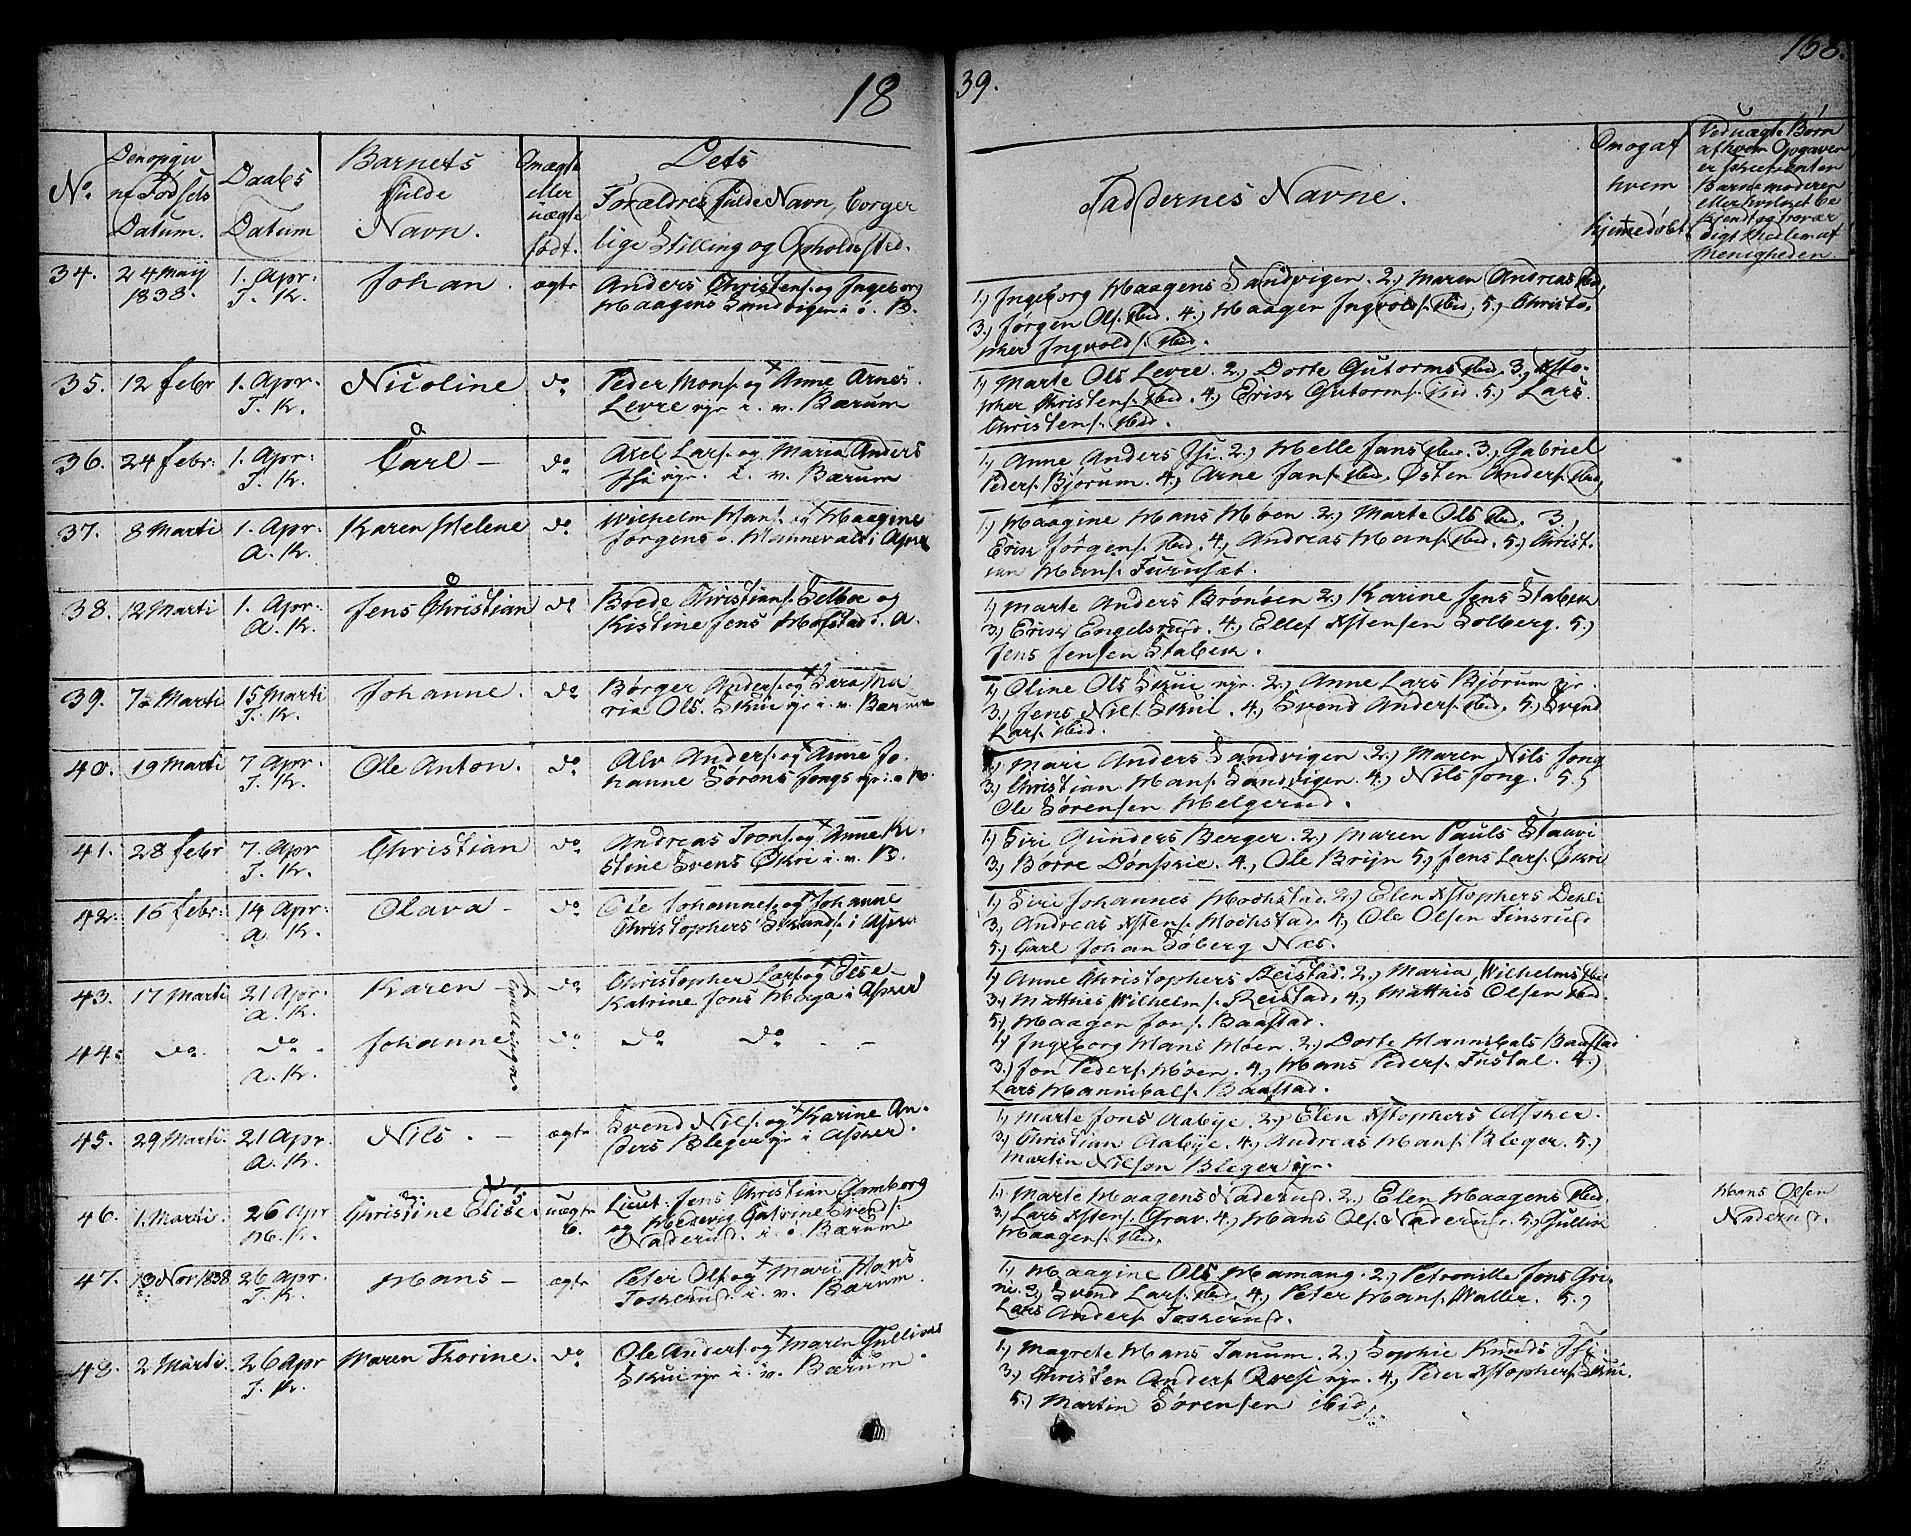 18
39.
158.
No.
Den opgivne Fødsels Datum.
Daabs Datum
Barnets fulde Navn.
Om ægte eller uægte født.
Dets Forældres fulde Navn, borgerlige Stilling og Opholdssted.
Faddernes Navne.
Om og af hvem hjemmedøbt.
Ved uægte Børn af hvem Opgaven er skeet enten Barnemoderen eller hvilket bekjendt og troværdigt Medlem af Menigheden.
34. 24 Maij 1838. 1. Apr: T. K. Johan. ægte
Anders Christens. og Ingeborg
Haagens Sandvigen i ø. B.
1, Ingeborg Haagens Sandvigen. 2, Maren Andreas ibid,
3, Jørgen Ols. ibid. 4, Haagen Ingvolds. ibid, 5, Christo-
pher Ingvolds. ibid.
35. 12 febr 1. Apr. T. K. Nicoline do
Peder Mons. og Anne Arnes
Levre nyr i v. Bærum
1, Marte Ols Levre. 2, Dorte Gutorms ibid. 3, Xsto-
pher Christens. ibid. 4, Erik Gutorms. ibid. 5, Lars
Christens. ibid.
36. 24 febr. 1. Apr: T. K. Carl – do
Axel Lars. og Maria Anders
nyr. i v. Bærum
1, Anne Anders 2, Helle Jans ibid. 3, Gabriel
Peders. Bjørum. 4, Arne Jans. ibid, Østen Anders. ibid,
37. 8 Marti 1. Apr: A. K. Karen Helene do
Wilhelm Hans. og Haagine
Jørgens i Asker
1, Haagine Hans Møen. 2, Marte Ols ibid. 3,
Erik Jørgens. ibid. 4, Andreas Hans. ibid. 5, Christ-
ian Hans. Furuset.
38. 12 Marti 1. Apr: A. K. Jens Christian do
Brede Christians. og
Kistine Jens Hofstad i. A.
1, Marte Anders Brønøen 2, Karine Jens Stabek
3, Erik Engelsrud. 4, Ellef Xstensen Solberg. 5,
Jens Jensen Stabek.
39. 7 Marti 15 Marti T. K. Johanne. do
Børger Anders. og Sara Ma
ria Ols. Skui nyr i v. Bærum
1, Oline Ols Skui nyr. 2, Anne Lars Bjørum nyr.
3, Jens Nils. Skui. 4, Svend Anders. ibid. 5, Svend
Lars. ibid.
40. 19 Marti 7 Apr: T. K. Ole Anton. do
Alv Anders. og Anne Jo-
hanne Sørens Jongs nyr i ø B.
1, Mari Anders Sandvigen. 2, Maren Nils Jong
3, Christian Hans. Sandvigen. 4, Nils Jong. 5,
Ole Sørensen Helgerud.
41. 28 febr 7. Apr T. K. Christian do
Andreas Trons. og Anne Ki-
stine Svens Økri i v. B.
1, Siri Gunders Berger. 2, Maren Pauls Staavi
3, Børre Dønski. 4, Ole Bryn 5, Jens Lars. Økri
42. 16 febr. 14 Apr: A. K. Olava – do
Ole Johannes. og Johanne
Christophers i Asker
1, Siri Johannes Hochstad. 2, Elen Xstophers Dehli
3, Andreas Xstens. Hochstad, 4, Ole Olsen Finsrud
5, Carl Johan Søberg Næs.
43. 17 Marti 21 Apr: A. K. Karen – do
Tvillinger
Christopher Lars. og Else
Katrine Jons Haga i Asker
1, Anne Christophers Reistad. 2, Maria Wilhelms ibid
3, Mathis Wilhelms. Reistad, 4, Mathis Olsen ibid.
5, Haagen Jons. Baastad.
44. do. do. A. K. Johanne do do do – –
1, Ingeborg Hans Møen. 2, Dorte Hannibals Baastad
3, Jon Peders. Møen. 4, Hans Peders. Tustal. 4,
Lars Hannibals. Baastad.
45. 29 Marti. 21 Apr. A. K. Nils. – ægte
Svend Nils. og Karine An-
ders Bleger nyr i Asker.
1, Marte Jons Aabye. 2, Elen Xstophers Asker.
3, Christian Aabye. 4, Andreas Hans. Bleger. 5,
Martin Nilsen Bleger nyr.
46. 1. Marti. 26 Apr H. K. Christine Elise. uægte 6.
Lieut. Jens Christian Gamborg
og Hedevig Catrine Svends.
Naderud. i ø Bærum
1, Marte Haagens Naderud. 2, Elen Haagens ibid.
3, Lars Xstens. Grav. 4, Hans Ols. Naderud. 5, Gullik
Haagens. ibid.
Hans Olsen
Naderud.
47. 13 Nov 1838 26 Apr. T. K. Hans – ægte
Peter Ols. og Mari Hans
Toskerud. i. v. Bærum.
1, Haagine Ols Hamang. 2, Petronille Jons Gri-
ni. 3, Svend Lars. ibid. 4, Peter Hans. Waller. 5,
Lars Anders. Toskerud.
48. 2 Marti. 26 Apr T. K. Maren Thorine. do
Ole Anders. og Maren Gulliks
Skui nyr i. v. Bærum.
1, Magrete Hans Tanum. 2, Sophie Knuds
3, Christen Anders. nyr. 4, Peder Xstophers. Skui.
5, Martin Sørensen ibid.